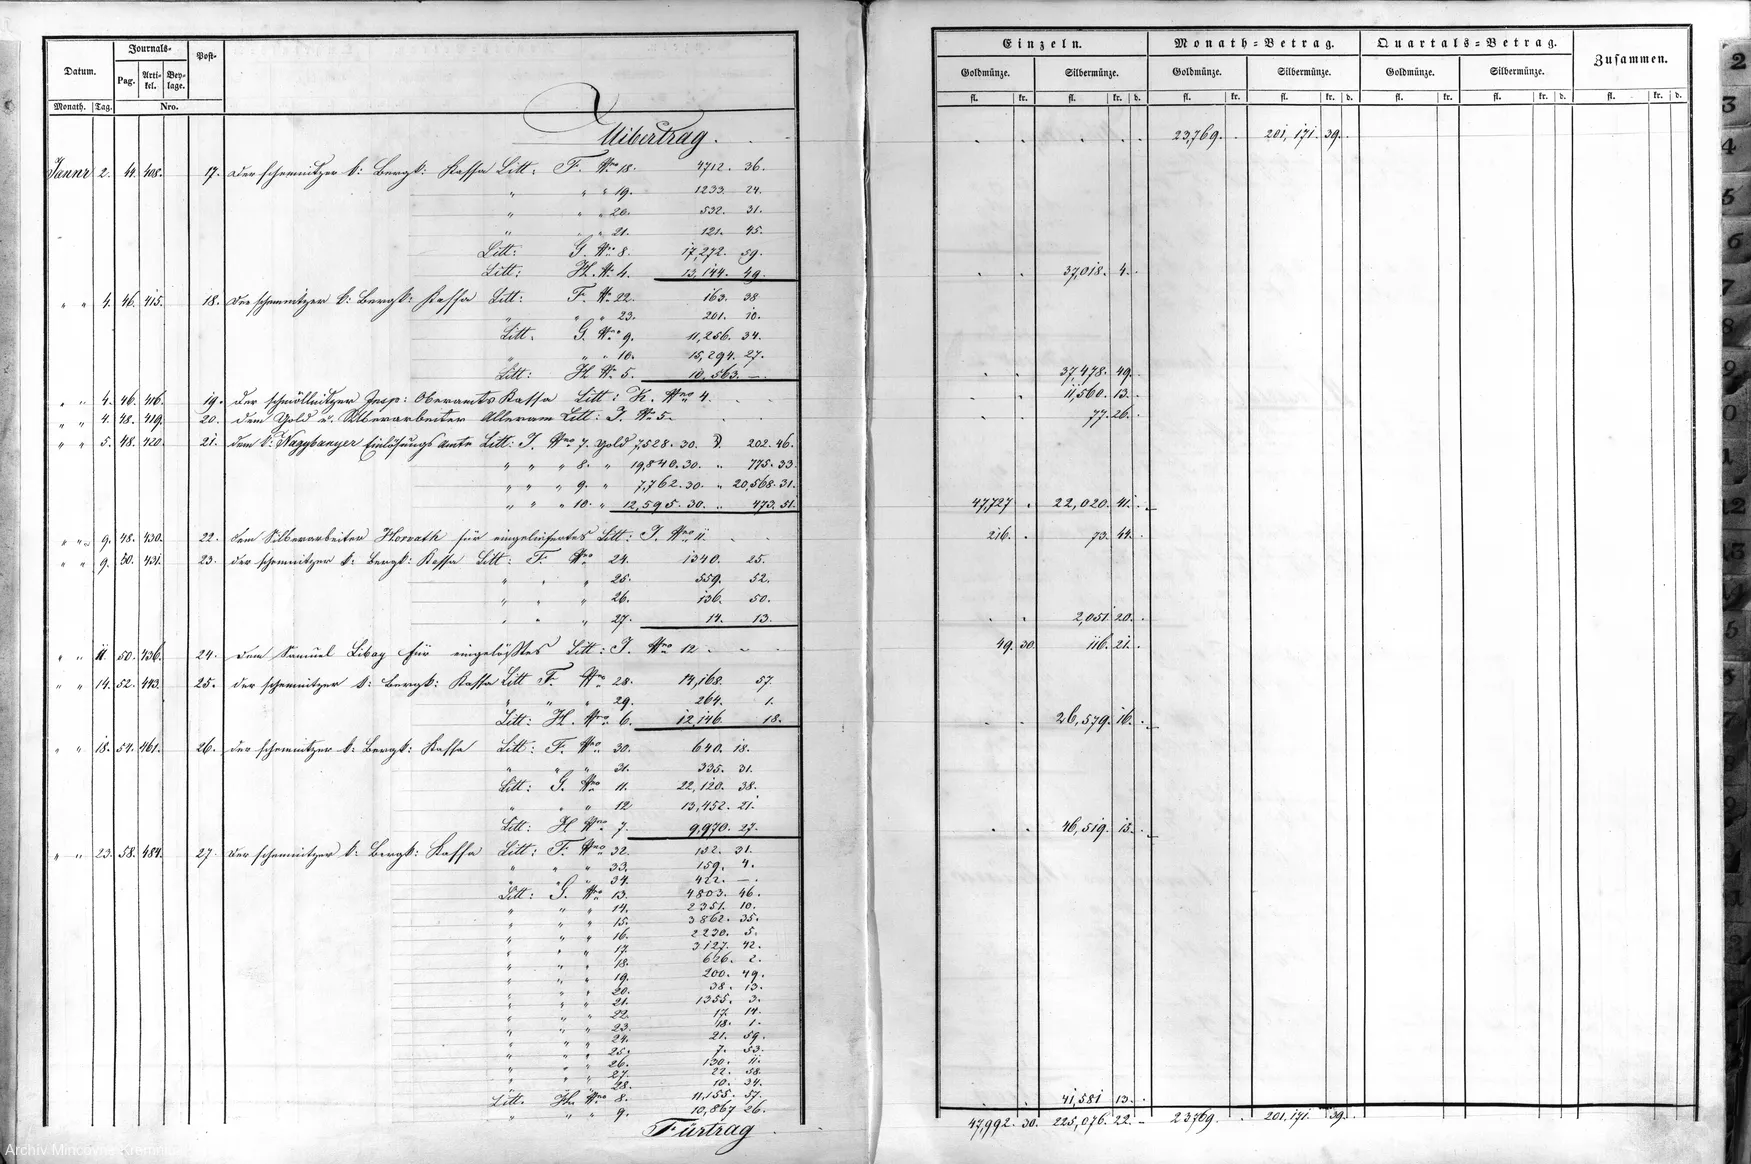 Datum. Journals- Post- Einzeln. Monath-Betrag. Quartals-Betrag. Zusammen.
Pag. Arti-kel. Bey-lage. Goldmünze. Silbermünze. Goldmünze. Silbermünze. Goldmünze. Silbermünze.
Monath. Tag. Nro. fl. kr. fl. kr. d. fl. kr. fl. kr. d. fl. kr. fl. kr. d. fl. kr. d.
Uibertrag. 23,769. 201,171. 39.
Jannr 2. 44. 408. 17. Der schemnitzer k: Bergk: Kassa Litt: F. Nro 18. 4712. 36.
" " " 19. 1233. 24.
" " " 20. 532. 31.
" " " 21. 121. 45.
Litt: G. Nro 8. 17,272. 59.
Litt: H. No 4. 13,144. 49. 37,018. 4.
" " 4. 46. 415. 18. Der schemnitzer k: Bergk: Kassa Litt: F. No 22. 163. 38
" " " 23. 201. 10.
Litt. G. Nro 9. 11,256. 34.
" " " 10. 15,294. 27.
Litt: H. No 5. 10,563. — 37,478. 49.
" " 4. 46. 416. 19. Der schmöllnitzer Insp: Oberamts Kassa Litt: K. Nro 4. 11,560. 13.
" " 4. 48. 419. 20. Dem Gold u. Silberarbeiter Alleram Litt: J. No 5. 77. 26.
" " 5. 48. 420. 21. dem k: Nagybanyer Einlösungs Amte Litt: J. Nro 7. Gold 7,528. 30. 202. 46.
" " " 8. " 19,840. 30. " 775. 33.
" " " 9. " 7,762. 30. " 20,568. 31.
" " " 10. " 12,595. 30. " 473. 51. 47,727 . 22,020. 41.
" " 9. 48. 430. 22. Dem Silberarbeiter Horvath für eingeliefertes Litt: J. Nro 11. 216. . 73. 44.
" " 9. 50. 431. 23. der schemnitzer k: Bergk: Kassa Litt: F. Nro 24. 1340. 25.
" " " 25. 559. 52.
" " " 26. 136. 50.
" " " 27. 14. 13. 2,051. 20.
" " 11. 50. 436. 24. Dem Samuel Libay für eingelößtes Litt: J. Nro 12 49. 30. 116. 21.
" " 14. 52. 443. 25. der schemnitzer k: Bergk: Kassa Litt F. Nro 28. 14,168. 57.
" " " 29. 264. 1.
Litt: H. Nro 6. 12,146. 18. 26,579. 16.
" " 18. 54. 461. 26. der schemnitzer k: Bergk: Kassa Litt: F. Nro 30. 640. 18.
" " " 31. 335. 31.
Litt: G. Nro 11. 22,120. 38.
" " " 12 13,452. 21.
Litt: H Nro 7. 9,970. 27. 46,519. 15.
" " 23. 58. 484. 27. Der schemnitzer k: Bergk: Kassa Litt: F. Nro 32. 152. 31.
" " " 33. 159. 4.
" " " 34. 422. —.
Litt: G. Nro 13. 4803. 46.
" " " 14. 2351. 10.
" " " 15. 3862. 35.
" " " 16. 2230. 5.
" " " 17. 3127. 42.
" " " 18. 626. 2.
" " " 19. 200. 49.
" " " 20. 38. 13.
" " " 21. 1355. 3.
" " " 22. 17. 14.
" " " 23. 18. 1.
" " " 24. 21. 59.
" " " 25. 7. 53.
" " " 26. 130. 11.
" " " 27. 22. 58.
" " " 28. 10. 34.
Litt. H. Nro 8. 11,155. 57.
" " " 9. 10,867 26. 41,581 13.
Fürtrag 47,992. 30. 225,076. 22. 23769. 201,171. 39.
Archiv Mincovne Kremnica
2
3
4
5
6
7
8